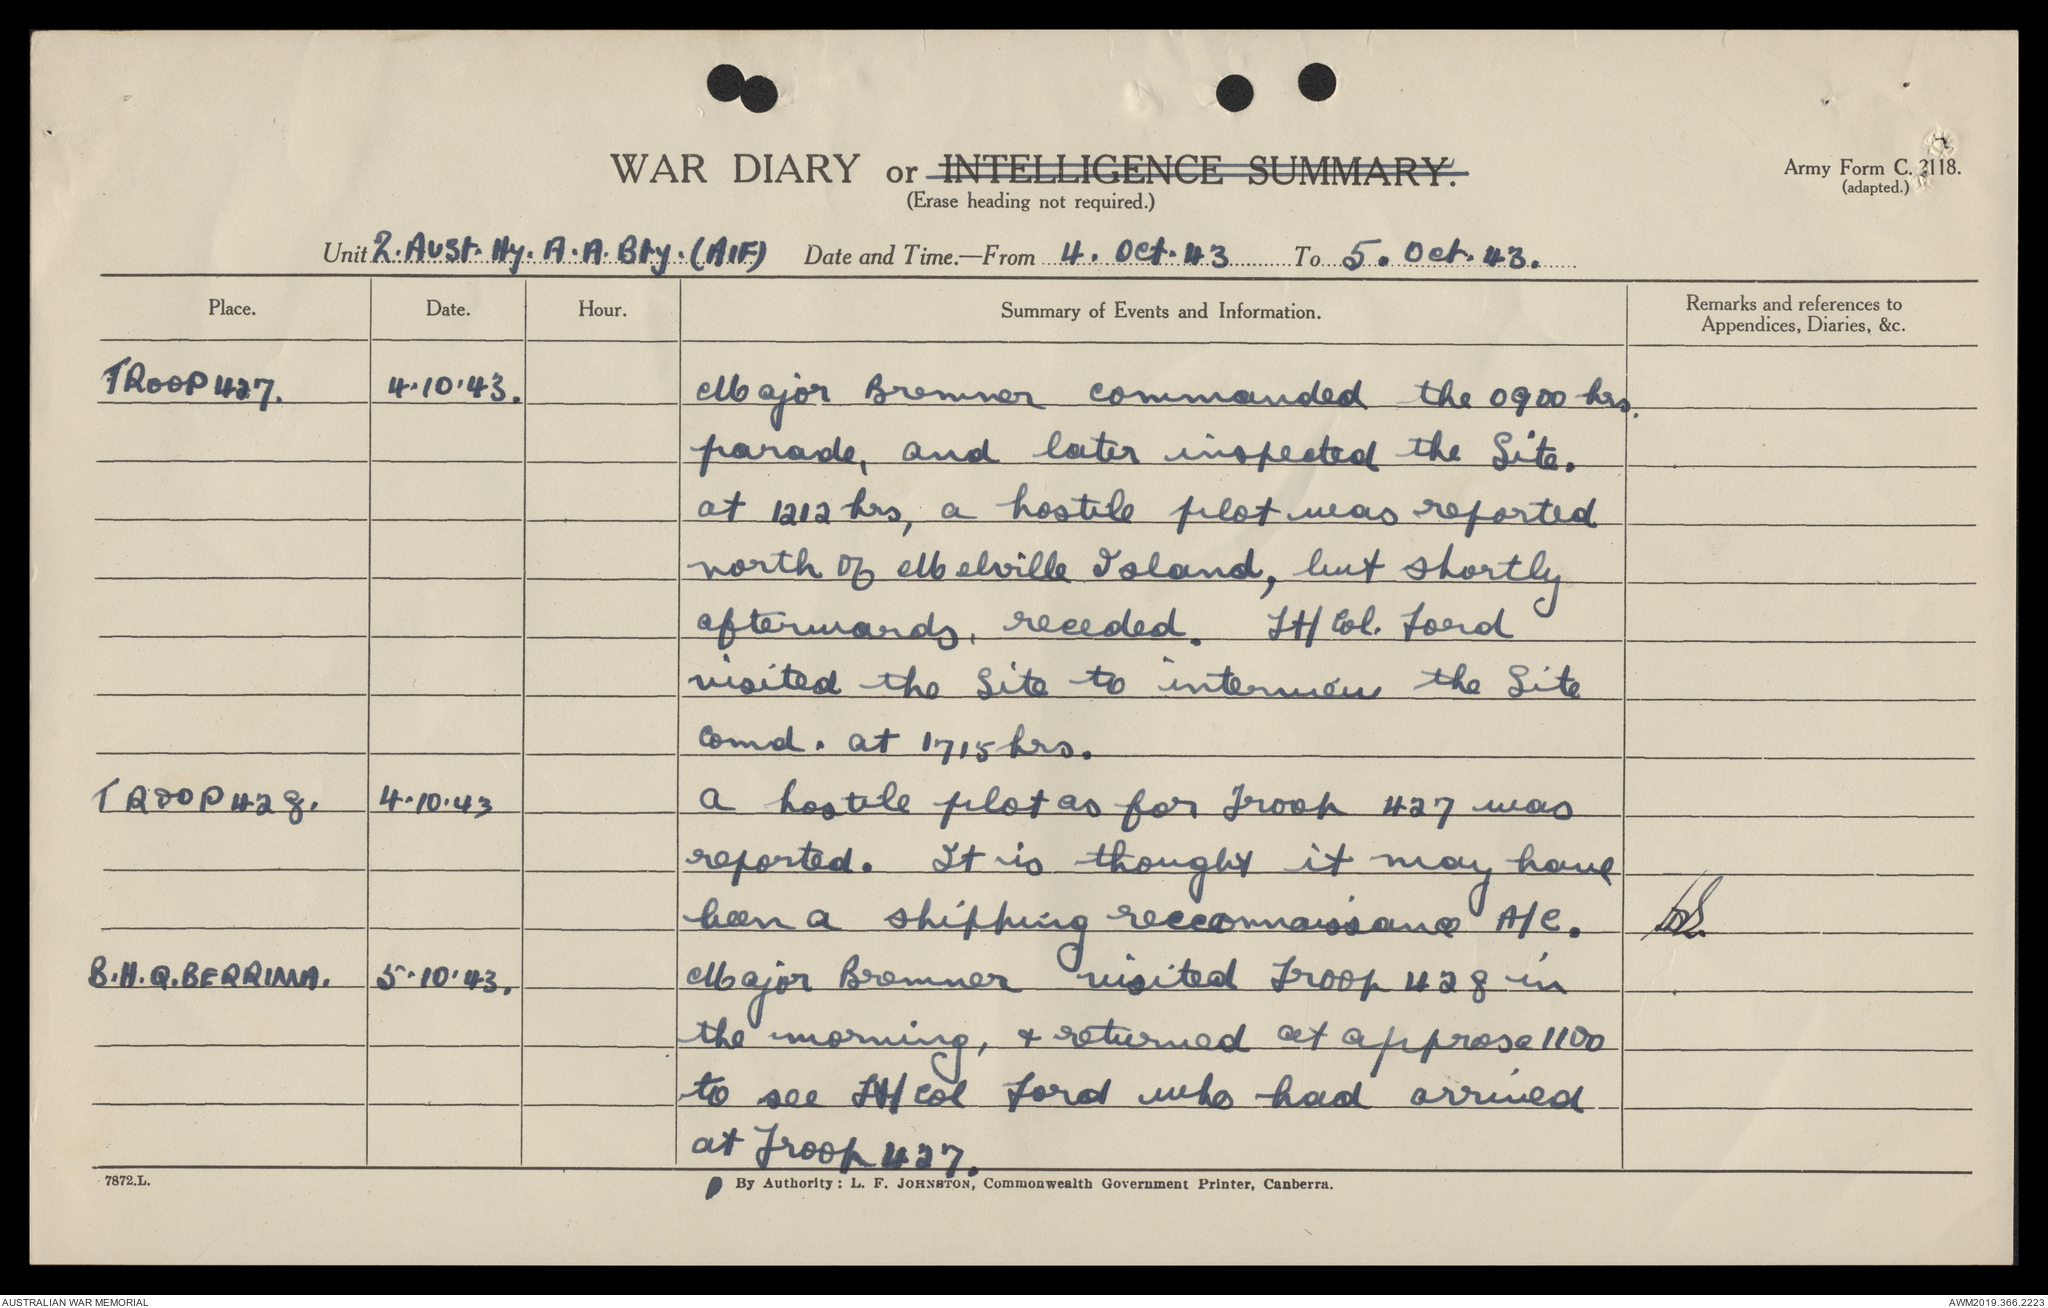 WAR DIARY or INTELLIGENCE SUMMARY.
(Erase heading not required.)
Army Form C. 2118.
(adapted.)
Unit 2. Aust. Hy. A. A. Bty. (AIF) Date and Time.—From 4. Oct. 43 To 5. Oct. 43.
Place. Date. Hour. Summary of Events and Information. Remarks and references to
Appendices, Diaries, &c.
TROOP 427. 4.10.43. Major Bremner commanded the 0900 hrs.
parade, and later inspected the Site.
at 1212 hrs, a hostile plot was reported
north of Melville Island, but shortly
afterwards, receded. Lt/Col. Ford
visited the Site to interview the Site
Comd. at 1715 hrs.
TROOP 428. 4.10.43 A hostile plot as for Troop 427 was
reported. It is thought it may have
been a shipping reconnaissance A/C.
B.H.Q. BERRIMA. 5.10.43. Major Bremner visited Troop 428 in
the morning, & returned at approx 1100
to see Lt/Col Ford who had arrived
at Troop 427.
7872.L. By Authority: L. F. JOHNSTON, Commonwealth Government Printer, Canberra.
AUSTRALIAN WAR MEMORIAL AWM2019.366.2223